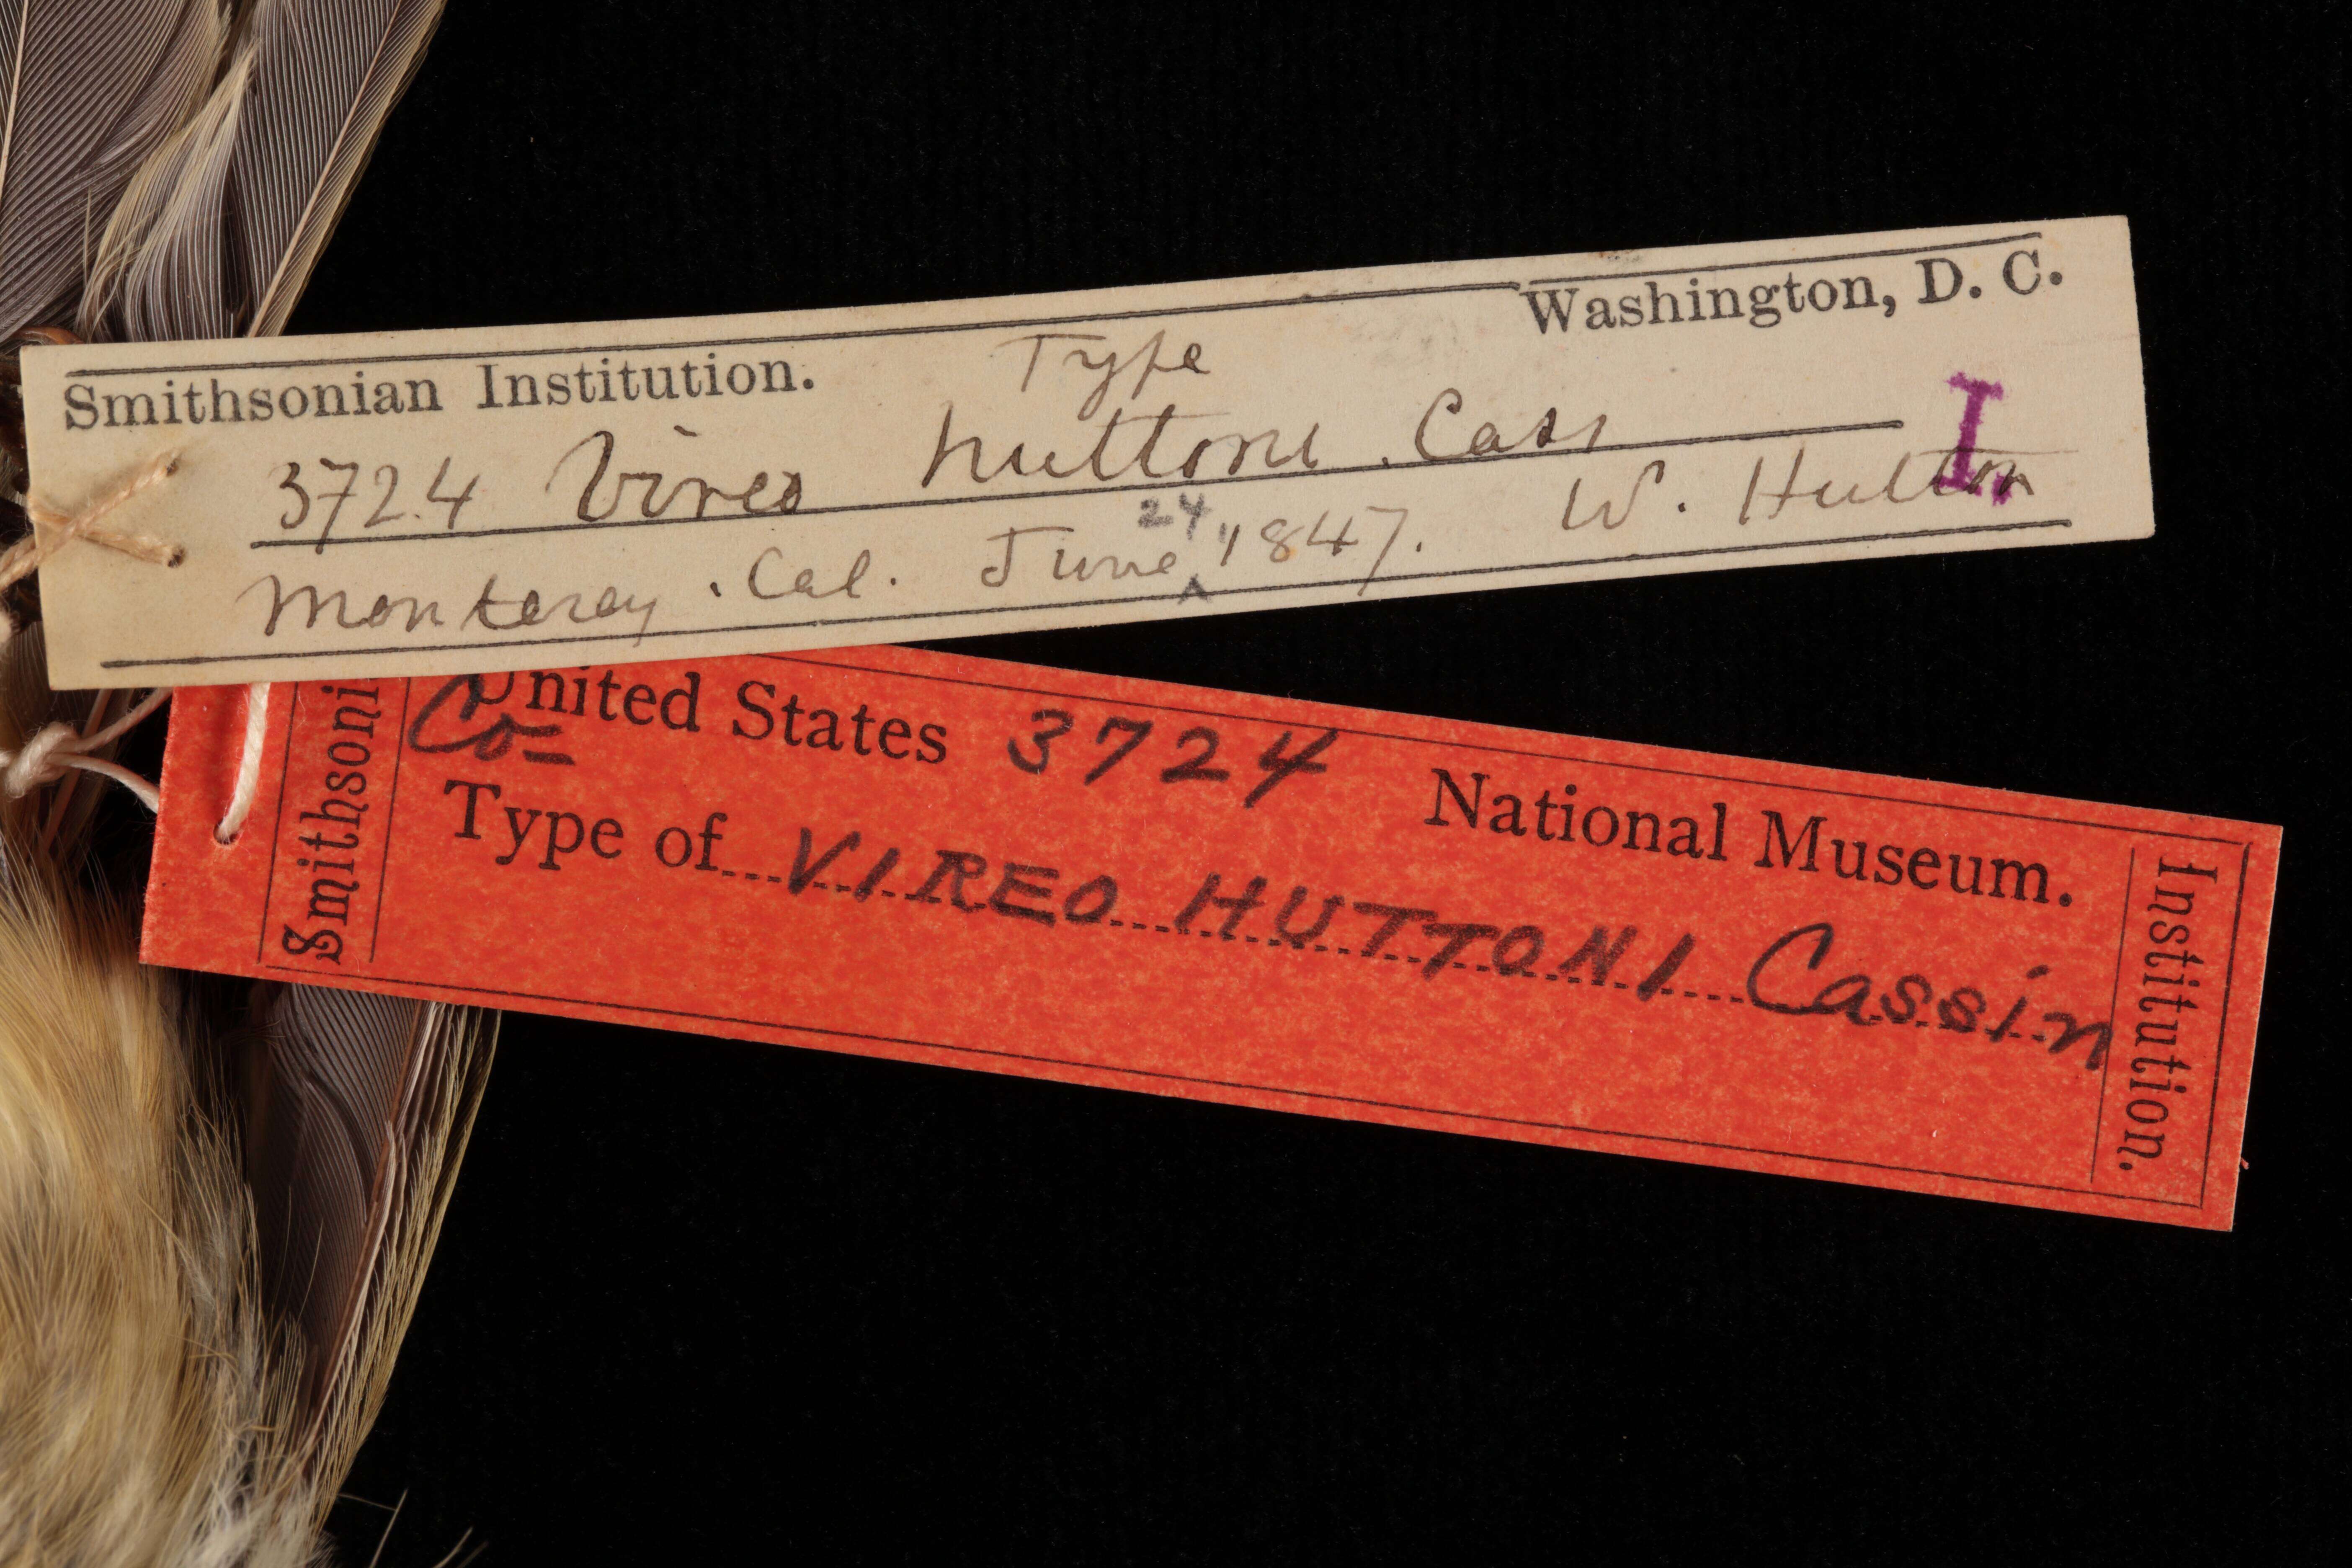 Smithsonian Institution. Type Washington, D. C.
3724 Vireo huttoni . Cass I.
Monterey . Cal. June 24, 1847. W. Hutton
United States 3724 National Museum.
Co=
Type of VIREO HUTTONI Cassin
Smithsoni
Institution.